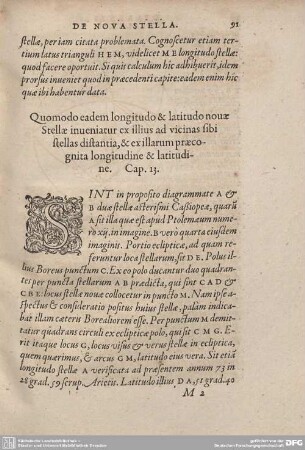 DE NOVA STELLA. 91
stellæ, per iam citata problemata. Cognoscetur etiam ter-
tium latus trianguli HEM, videlicet ME longitudo stellæ:
quod facere oportuit. Si quis calculum hic adhibuerit, idem
prorsus inueniet quod in præcedenti capite: eadem enim hîc
quæ ibi habentur data.
Quomodo eadem longitudo & latitudo nouæ
Stellæ inueniatur ex illius ad vicinas sibi
stellas distantia, & ex illarum præco-
gnita longitudine & latitudi-
ne. Cap. 13.
SINT in proposito diagrammate A &
B duæ stellæ asterismi Cassiopeæ, quarū
A sit illa quæ est apud Ptolemæum nume-
ro xij, in imagine. B vero quarta eiusdem
imaginis. Portio eclipticæ, ad quam re-
feruntur loca stellarum, sit DE. Polus il-
lius Boreus punctum C. Ex eo polo ducantur duo quadran-
tes per puncta stellarum A B prædicta, qui sint CAD &
CBE: locus stellæ nouæ collocetur in puncto M. Nam ipse a-
spectus & consideratio positus huius stellæ, palàm indica-
bat illam cæteris Borealiorem esse. Per punctum M demit-
tatur quadrans circuli ex eclipticæ polo, qui sit CMG. E-
rit itaque locus G, locus visus & verus stellæ in ecliptica,
quem quærimus, & arcus GM, latitudo eius vera. Sit etiā
longitudo stellæ A verificata ad præsentem annum 73 in
28 grad. 59 scrup. Arietis. Latitudo illius DA, 51 grad. 40
M 2